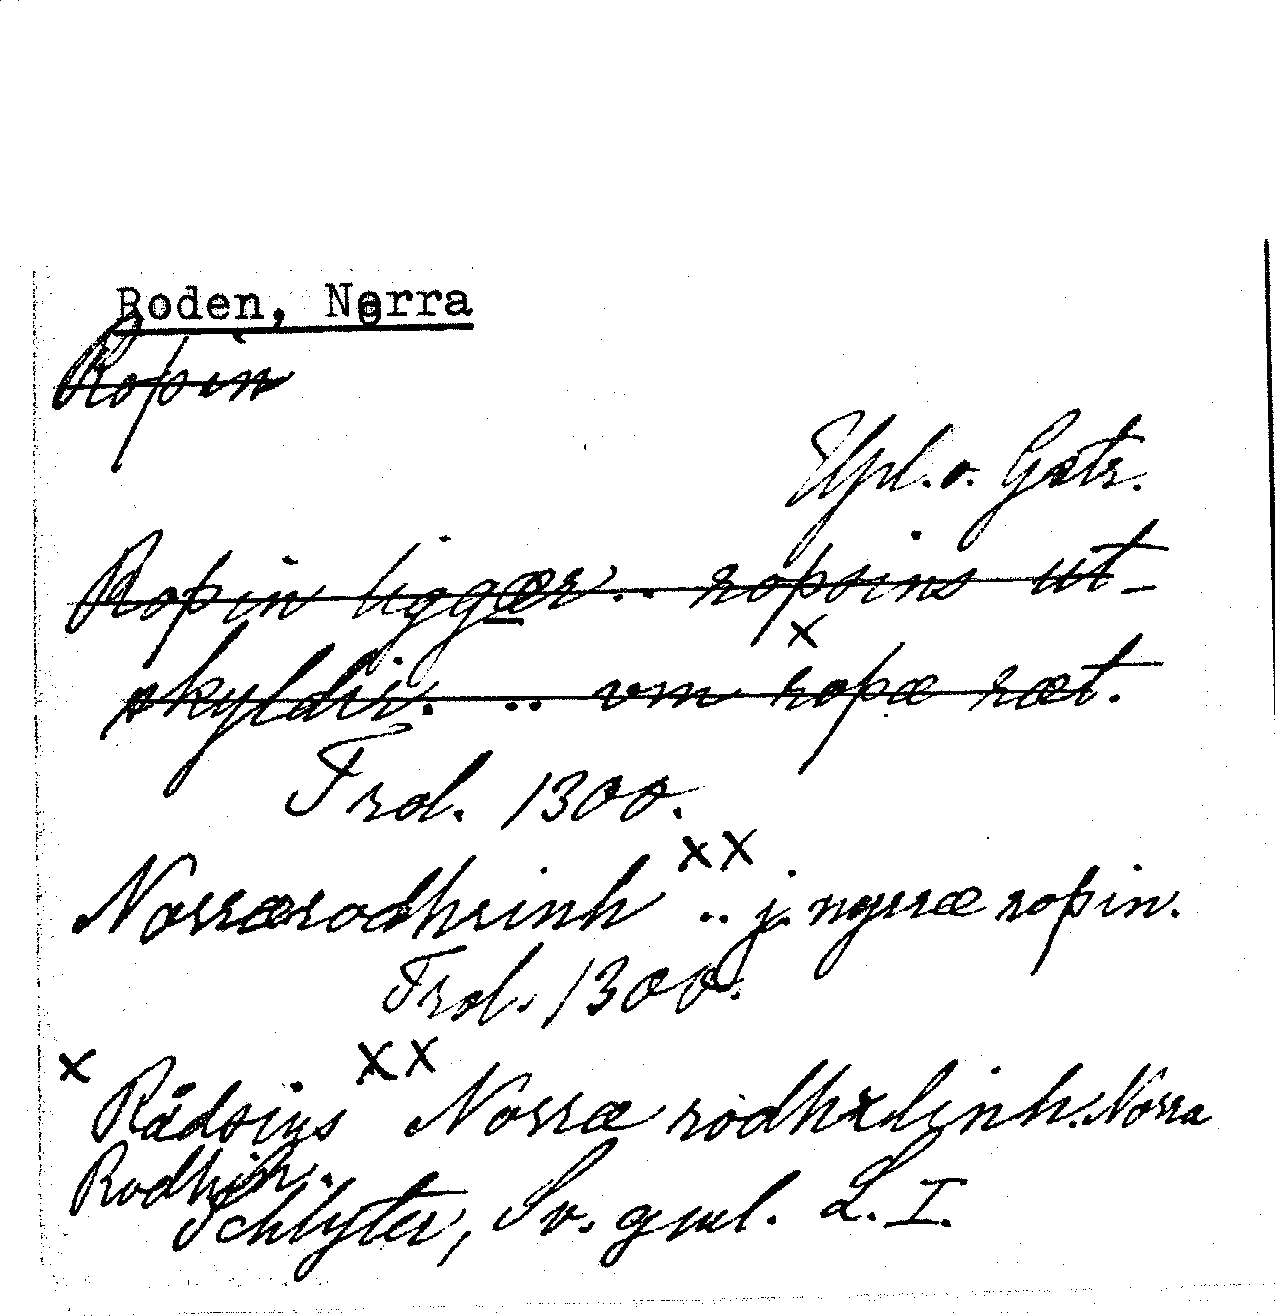 Roden, Norra
Roþin
Upl. o. Gästr.
Roþin liggær .. roþsins ut-
skyldir. .. vm roþæ ræt.
Frol. 1300.
Norrærodhrinh xx .. j. nyrræ roþin.
Frol. 1300.
x Rådsins xx Norræ rodhxlinh. Norra
Rodhin.
Schlyter, Sv. gml. L. I.